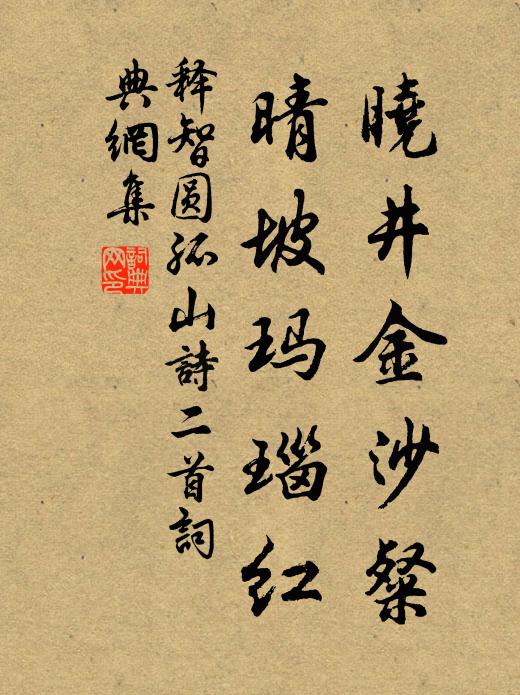 曉井金沙粲
晴坡玛瑙红
释智圆孤山詩二首詞
典網集
詞典
网印